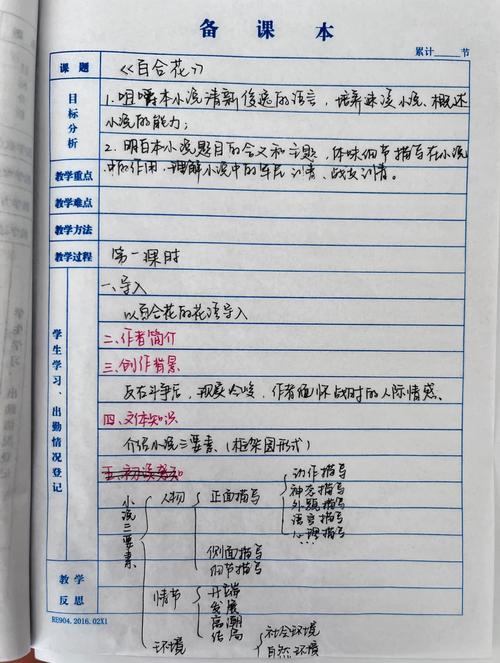 备课本
累计____节
课题 《百合花》
目标分析
1.咀嚼本小说清新俊逸的语言，培养速读小说、概述
小说的能力；
2.明白本小说题目的含义和主题，体味细节描写在小说
教学重点 中的作用，理解小说中的军民情、战友情。
教学难点
教学方法
教学过程 第一课时
学生学习、出勤情况登记
一、导入
以百合花的花语导入
二、作者简介
三、创作背景
反右斗争后，现实冷峻，作者缅怀战时的人际情感。
四、文体知识
介绍小说三要素。（框架图形式）
五、初读感知
小说三要素
人物 正面描写 动作描写
神态描写
外貌描写
语言描写
心理描写
侧面描写
细节描写
情节 开端
发展
高潮
结局
环境 社会环境
自然环境
教学反思
RE904.2016.02X1